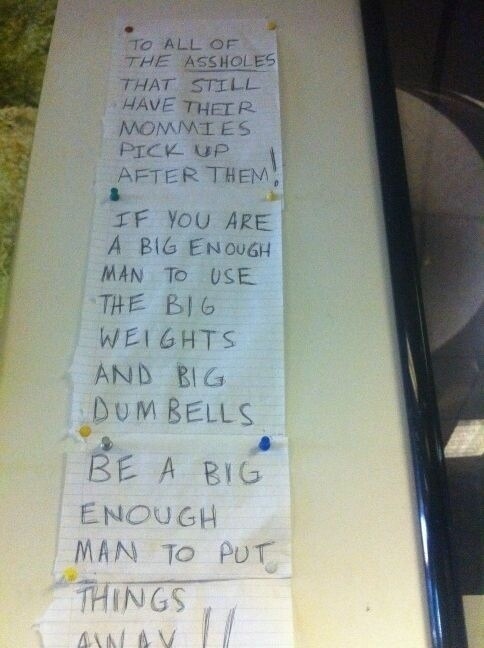 TO ALL OF
THE ASSHOLES
THAT STILL
HAVE THEIR
MOMMIES
PICK UP
AFTER THEM!
IF YOU ARE
A BIG ENOUGH
MAN TO USE
THE BIG
WEIGHTS
AND BIG
DUMBELLS
BE A BIG
ENOUGH
MAN TO PUT
THINGS
AWAY!!